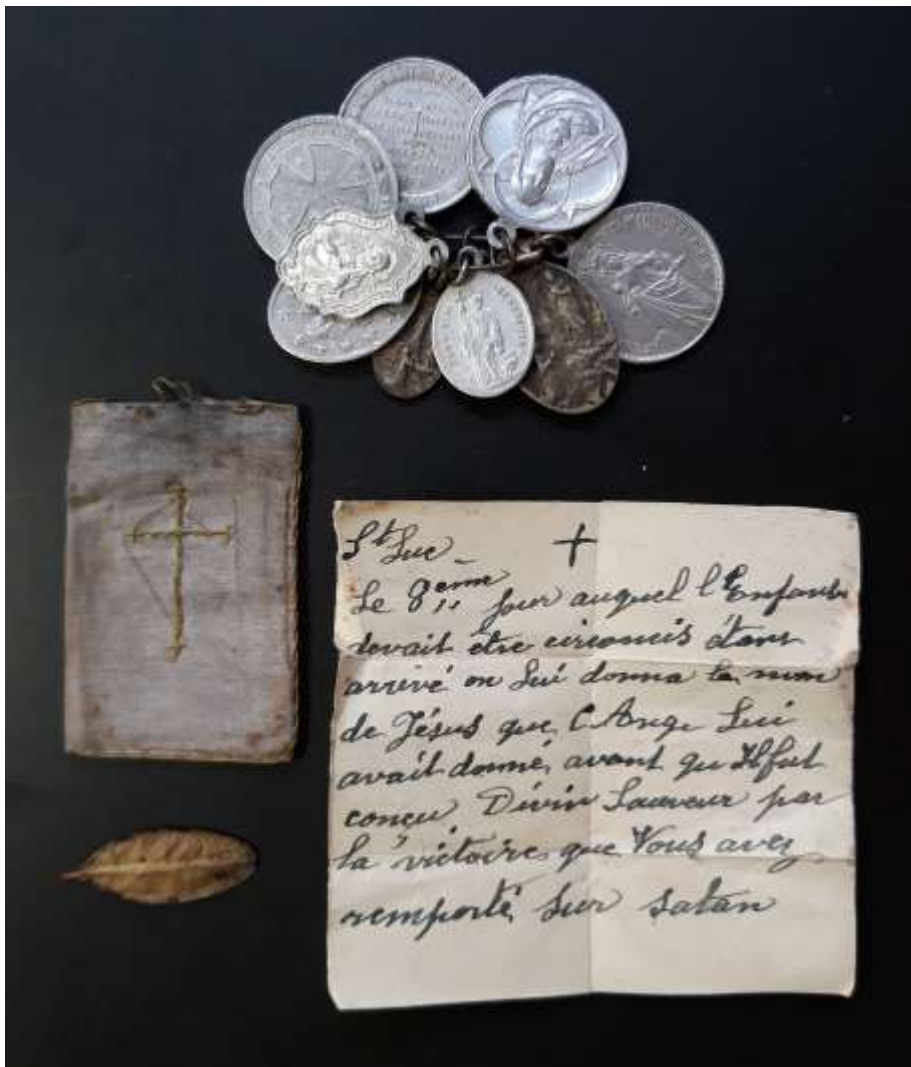 St Luc +
Le 8ème jour auquel l'Enfant
devait être circoncis étant
arrivé on Lui donna le nom
de Jésus que l'Ange Lui
avait donné, avant qu'Il fut
conçu Divin Sauveur par
la victoire que Vous avez
remporté sur satan